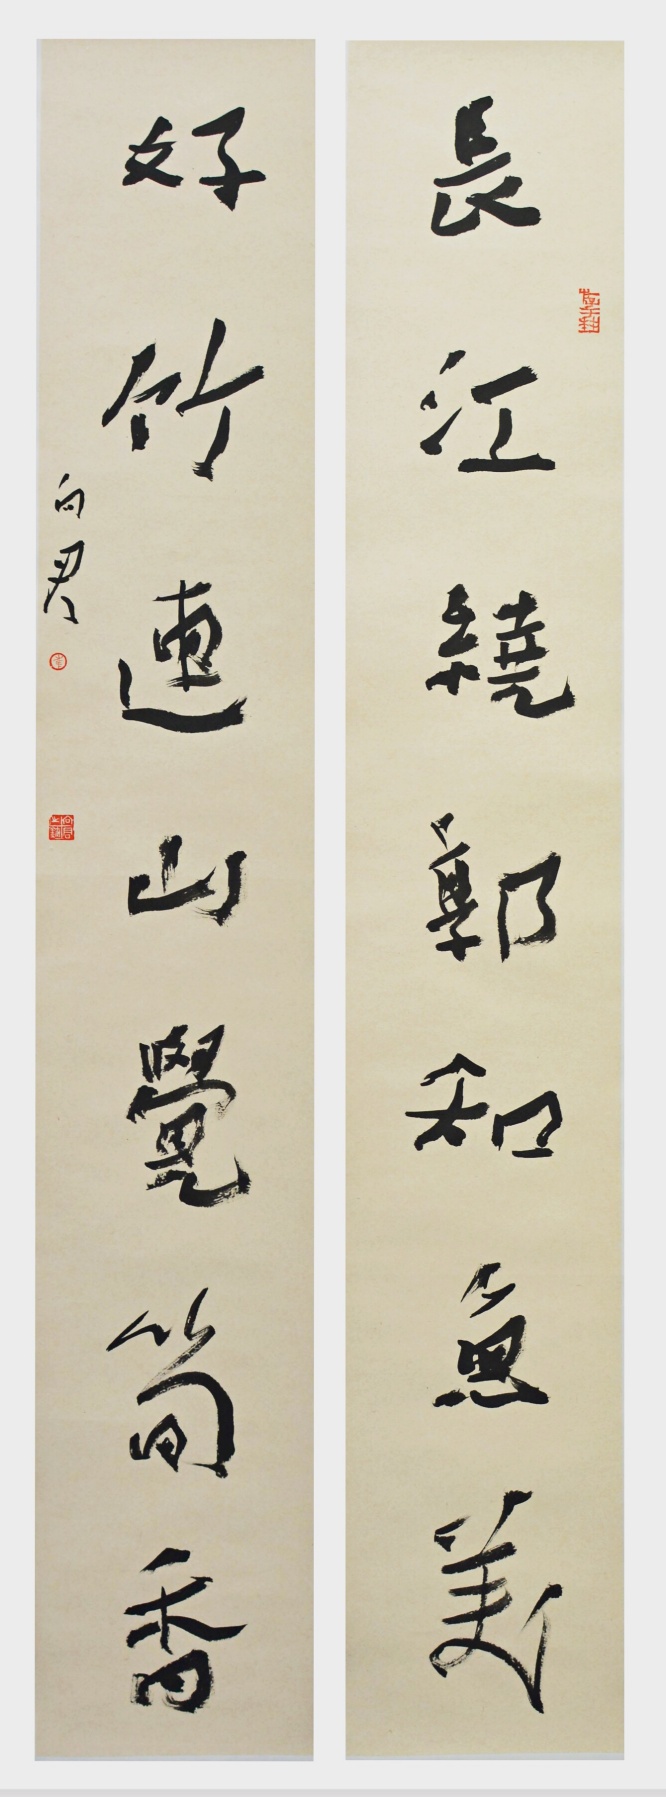 長江繞郭知魚美
好竹連山覺筍香
向君